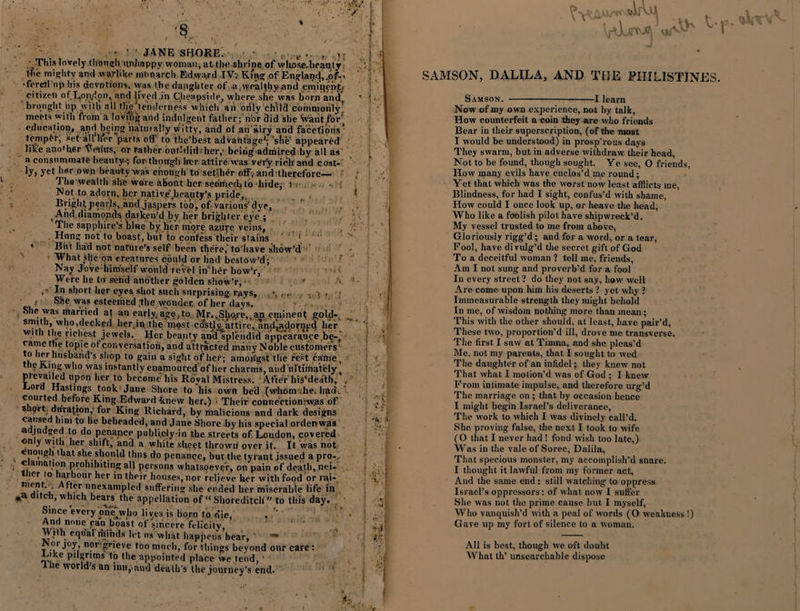 8
JANE SHORE.
This lovely though unhappy woman, at the shrine of whose beauty
the mighty and warlike monarch Edward IV. King of England, of-
fered up his devotions, was the daughter of a wealthy and eminent
citizen of London, and lived in Cheapside, where she was born and
brought up with all the tenderness which an only child commonly
meets with from a loving and indulgent father; nor did she want for
education, and being naturally witty, and of an airy and facetious
temper, set all her parts off to the best advantage; she appeared
like another Venus, or rather outdid her, being admired by all as
a consummate beauty; for though her attire was very rich and cost-
ly, yet her own beauty was enough to set her off, and therefore—
The wealth she wore about her seemeth to hide,
Not to adorn, her native beauty's pride,
Bright pearls, and jaspers too, of various dye,
And diamonds darken'd by her brighter eye;
The sapphire's blue by her more azure veins,
Hung not to boast, but to confess their stains
But had not nature's self been there, to have show'd
What she on creatures could or had bestow'd;
Nay Jove himself would revel in her bow'r,
Were he to send another golden show'r,
In short her eyes shot such surprising rays,
She was esteemed the wonder of her days.
She was married at an early age, to Mr. Shore, an eminent gold-
smith, who decked her in the most costly attire, and adorned her
with the richest jewels. Her beauty and splendid appearance be-
came the topic of conversation, and attracted many Noble customers
to her husband's shop to gain a sight of her; amongst the rest came
the King who was instantly enamoured of her charms, and ultimately
prevailed upon her to become his Royal Mistress. After his death,
Lord Hastings took Jane Shore to his own bed (whom he had
courted before King Edward knew her.) Their connection was of
short duration, for King Richard, by malicious and dark designs
caused him to be beheaded, and Jane Shore by his special order was
adjudged to do penance publicly in the streets of London, covered
only with her shift, and a white sheet thrown over it. It was not
enough that she should thus do penance, but the tyrant issued a pro-
clamation prohibiting all persons whatsoever, on pain of death, nei-
ther to harbour her in their houses, nor relieve her with food or rai-
ment. After unexampled suffering she ended her miserable life in
a ditch, which bears the appellation of "Shoreditch" to this day.
Since every one who lives is born to die,
And none can boast of sincere felicity,
With equal minds let us what happens bear,
Nor joy, nor grieve too much, for things beyond our care:
Like pilgrims to the appointed place we tend,
The world's an inn, and death's the journey's end.
SAMSON, DALILA, AND THE PHILISTINES.
SAMSON. ————I learn
Now of my own experience, not by talk,
How counterfeit a coin they are who friends
Bear in their superscription, (of the most
I would be understood) in prosp'rous days
They swarm, but in adverse withdraw their head,
Not to be found, though sought. Ye see, O friends,
How many evils have enclos'd me round;
Yet that which was the worst now least afflicts me,
Blindness, for had I sight, confus'd with shame,
How could I once look up, or heave the head,
Who like a foolish pilot have shipwreck'd.
My vessel trusted to me from above,
Gloriously rigg'd; and for a word, or a tear,
Fool, have divulg'd the secret gift of God
To a deceitful woman? tell me, friends,
Am I not sung and proverb'd for a fool
In every street? do they not say, how well
Are come upon him his deserts? yet why?
Immeasurable strength they might behold
In me, of wisdom nothing more than mean;
This with the other should, at least, have pair'd,
These two, proportion'd ill, drove me transverse.
The first I saw at Timna, and she pleas'd
Me, not my parents, that I sought to wed
The daughter of an infidel; they knew not
That what I motion'd was of God; I knew
From intimate impulse, and therefore urg'd
The marriage on; that by occasion hence
I might begin Israel's deliverance,
The work to which I was divinely call'd.
She proving false, the next I took to wife
(O that I never had! fond wish too late,)
Was in the vale of Sorec, Dalila,
That specious monster, my accomplish'd snare.
I thought it lawful from my former act,
And the same end: still watching to oppress
Israel's oppressors: of what now I suffer
She was not the prime cause but I myself,
Who vanquish'd with a peal of words (O weakness!)
Gave up my fort of silence to a woman.
All is best, though we oft doubt
What th' unsearchable dispose